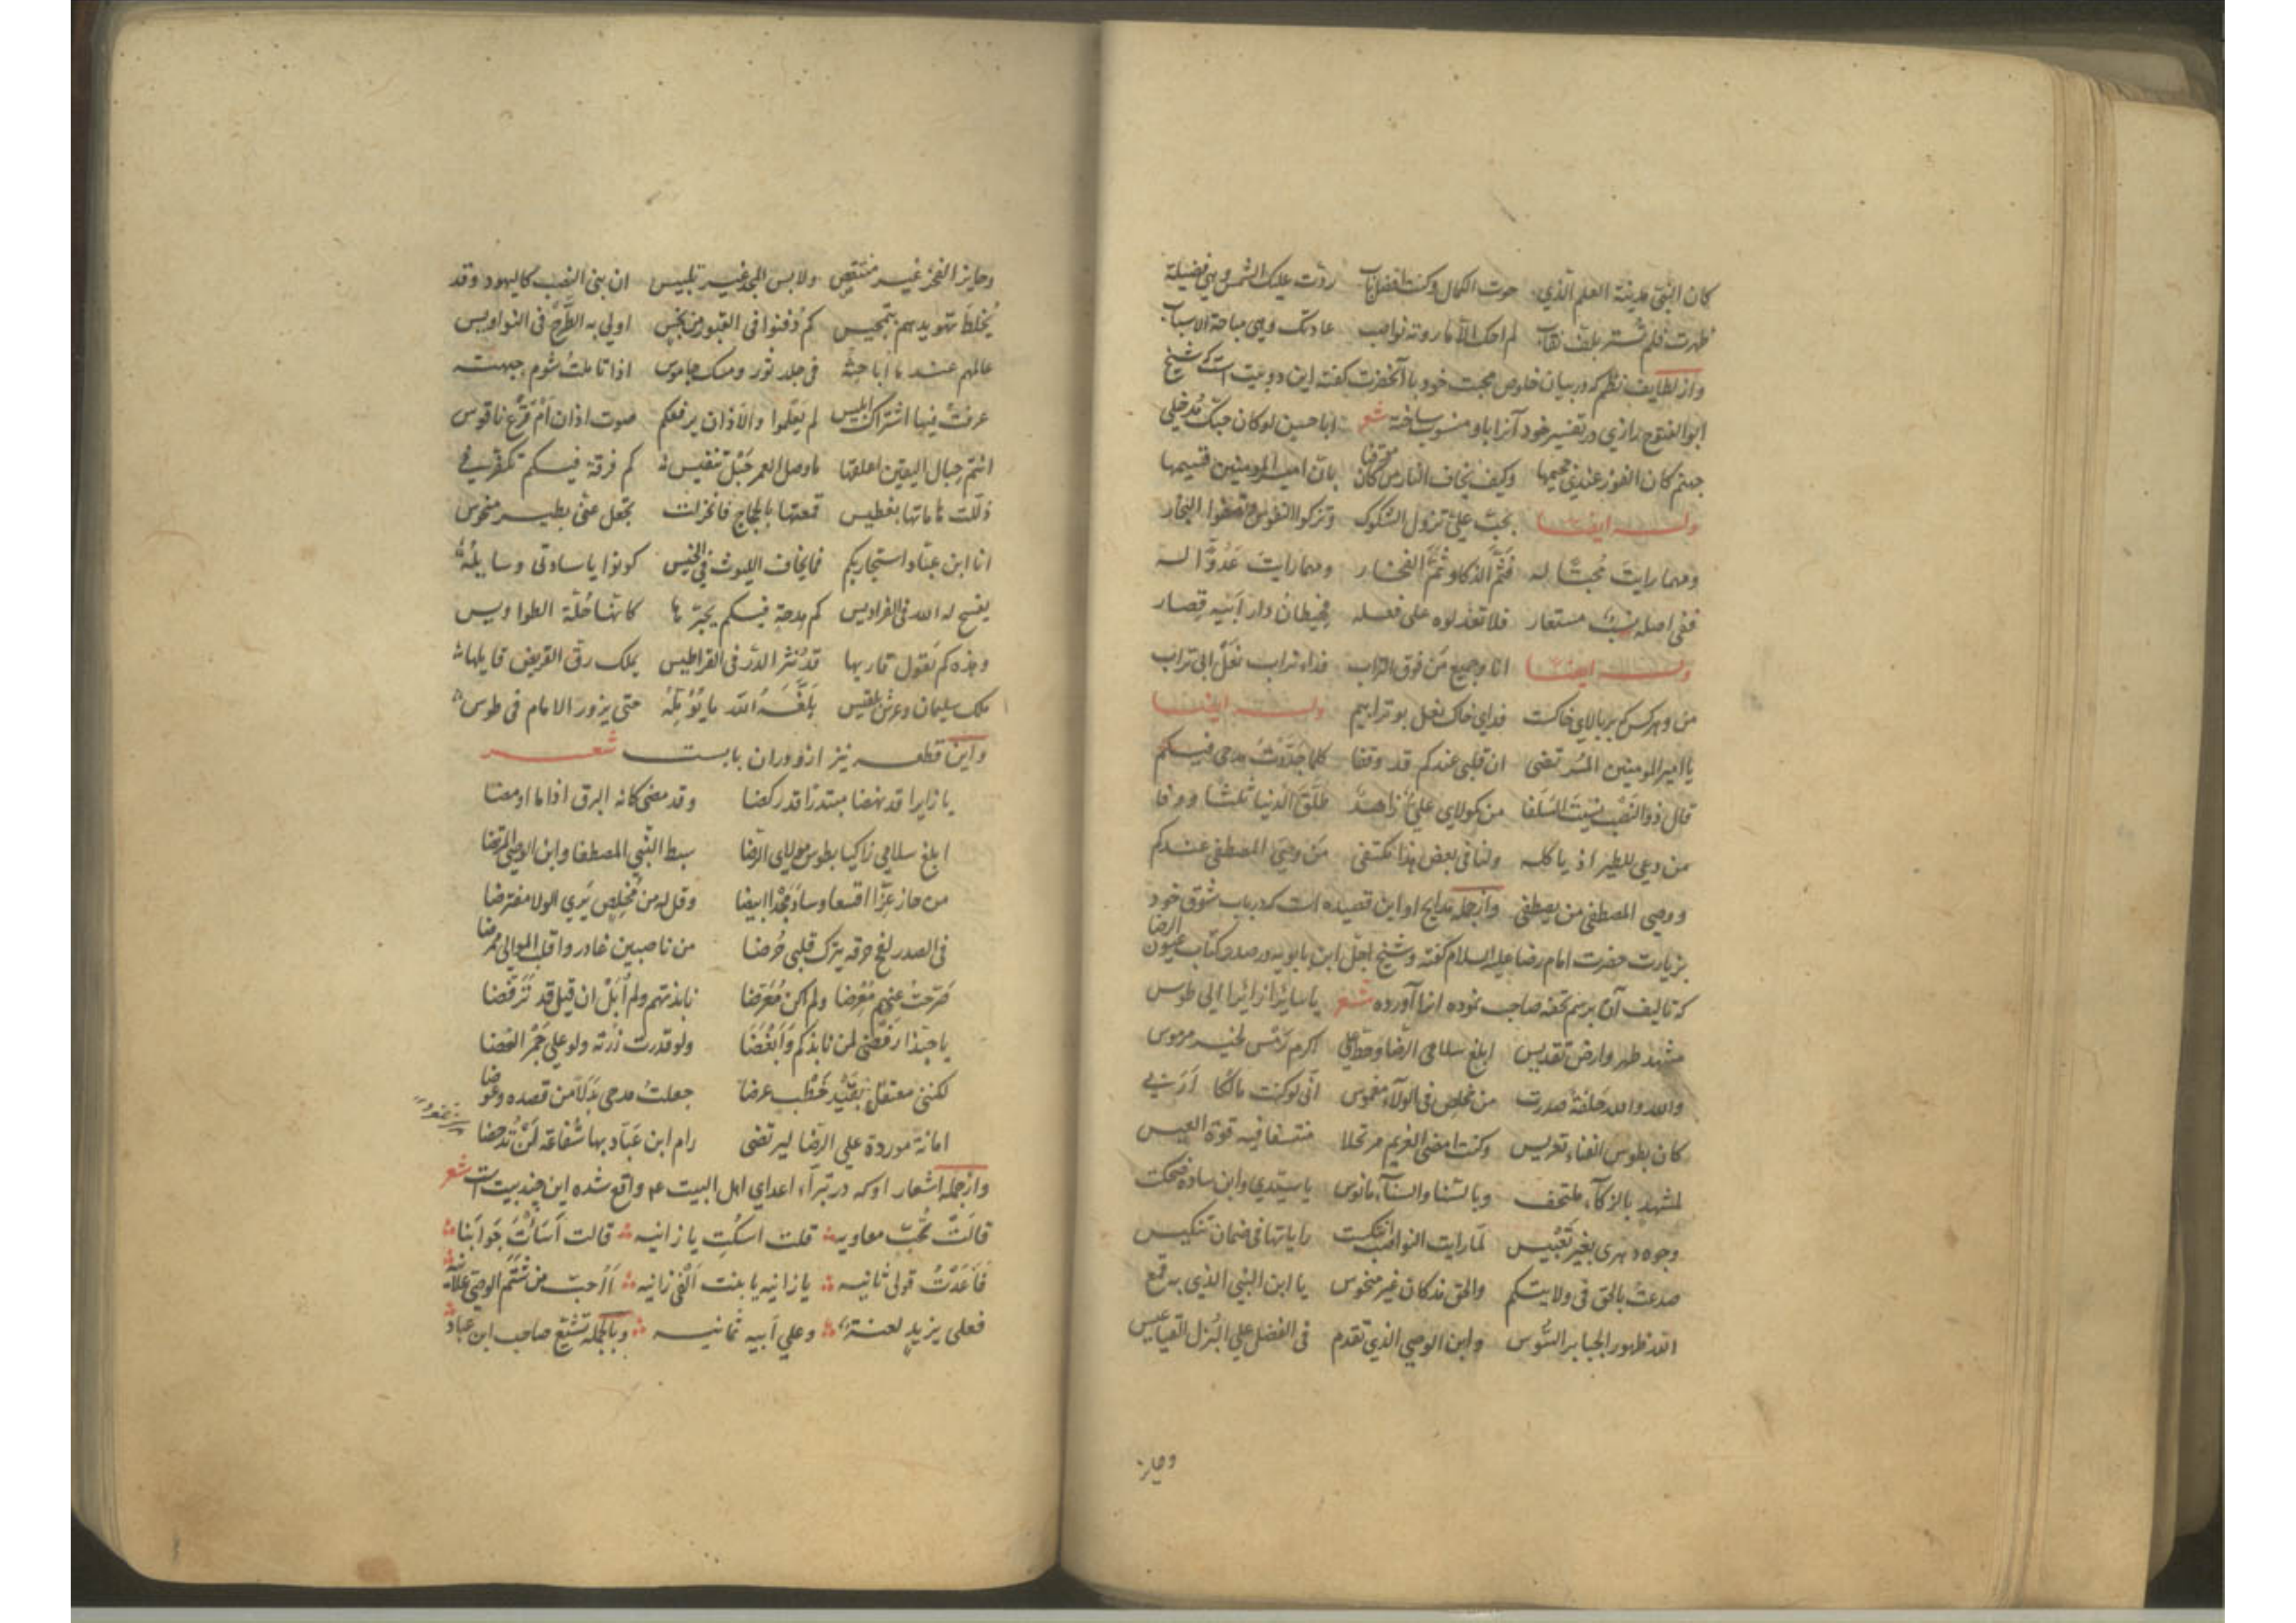 كان النبی مدینة العلم الذي حوت الكمال وكنت افضل باب ردّت علیك الشمس وهي فضیلة
ظهرت فلم تستر بلف نقاب لم احك الا ما روته نواصب عادتك وهی مباحة الاسباب
واز لطایف نظم که در بیان خلوص محبت خود با آنحضرت گفته این دو بیت است که شیخ
ابوالفتوح رازي در تفسیر خود آنرا باو منسوب ساخته شعر ابا حسین لو كان حبك مُدخلی
جهنم كان الفوز عندي جحیمها وكیف یخاف النار من كان موقنا بان امیر المومنین قسیمها
وله ایضا بحب علیّ تزول الشكوك وتزكوا النفوس وتصفوا النجار
ومهما رایتَ مُحبّا له فَثَمَّ الذكاء وثَمَّ الفخار ومهما رایت عَدُوًّا له
ففی اصله نسب مستعار فلا تعذلوه علی فعله فحیطان دار ابیه قصار
وله ایضا انا وجمیع من فوق التراب فداء تراب نعل ابی تراب
من و هر کس که بر بالای خاکست فدای خاک نعل بوترابیم وله ایضا
یا امیر المومنین المرتضی ان قلبی عندكم قد وقفا كلما جدّدتُ مدحی فیكم
قال ذو النصب نسیتَ السلفا من كمولای علیّ زاهد طلّق الدنیا ثلثا ووفا
من دعی للطیر اذ یاكله ولنا فی بعض هذا مكتفی من وصی المصطفی عندكم
ووصی المصطفی من یصطفی وازجمله مدایح او این قصیده است که در باب شوق خود
بزیارت حضرت امام رضا علیه السلام گفته و شیخ اجل ابن بابویه در صدر کتاب عیون الرضا
که تالیف آن برسم تحفه صاحب نموده انرا آورده شعر یا سایرا زایرا الی طوس
مشهد طهر وارض تقدیس ابلغ سلامی الرضا وحط علی اكرم رمس لخیر مرموس
والله والله حلفة صدرت من مخلص فی الولاء مغموس انی لو كنت مالكا اربی
كان بطوس الفناء تعریس وكنت امضی العزیم مرتحلا منتسفا فیه قوة العیس
لمشهد بالزكاء ملتحف وبالسنا والسناء مانوس یا سیدي وابن سادة ضحكت
وجوه دهری بغیر تعبیس لما رایت النواصب انتكست رایاتها فی ضمان تنكیس
صدعت بالحق فی ولایتكم والحق مذ كان غیر منخوس یا ابن النبی الذي به قمع
الله ظهور الجبابر الشوس وابن الوصی الذي تقدم فی الفضل علی البزل القناعیس
وحایز
وحایز الفخر غیر منتقص ولابس المجد غیر تلبیس ان بنی النصب كالیهود وقد
یُخلط تهویدهم بتمجیس كم دُفنوا فی القبور من نجس اولی به الطرح فی النواویس
عالمهم عند ما اُباحثه فی جلد ثور ومسك جاموس اذا تاملتُ شوم جبهته
عرفت فیها اشتراك ابلیس لم یعلموا والاذان یرفعكم صوت اذان أم قرع ناقوس
انتم حبال الیقین اعلقها ما وصل العمر حبل تنفیس كم فرقة فیكم تكفّرنی
ذللت هاماتها بفطیس قمعتها بالحجاج فانخزلت تجفل عنی بطیر منحوس
انا ابن عباد استجار بكم فما یخاف اللیوث فی الخیس كونوا یا سادتی وسایله
یفسح له الله فی الفرادیس كم مدحة فیكم یحبّرها كانها حُلّة الطواویس
وهذه كم یقول قاریها قد نثر الدر فی القراطیس یملك رق القریض قایلها
ملك سلیمان وعرش بلقیس بلّغه الله ما یؤمّله حتی یزور الامام فی طوس
واین قطعه نیز ازو دران بابست شعر
یا زایرا قد نهضا مبتدرا قد ركضا وقد مضی كانه البرق اذا ما اومضا
ابلغ سلامی زاكیا بطوس مولای الرضا سبط النبی المصطفا وابن الوصی المرتضا
من حاز عزّا اقعسا وساد مجدا ابیضا وقل له من مُخلِص یَری الولا مفترضا
فی الصدر لفح حرقه یترك قلبی حرضا من ناصبین غادروا قلب الموالی ممرضا
صَرّحتُ عنهم مُعرِضا ولم اكن مُعَرّضا نابذتهم ولم اُبَلْ ان قیل قد ترفّضا
یا حبّذا رَفضی لمن نابذكم وَاَبغضا ولو قدرت زُرته ولو علی جَمْر الغضا
لكننی معتقل بقَیْد خَطْب عرضا جعلتُ مدحی بَدَلا من قصده وعوضا
امانة موردة علی الرضا لیرتضی رام ابن عبّاد بها شفاعة لن تُدحضا
وازجمله اشعار او که در تبرّاء اعدای اهل البیت ع واقع شده این چند بیت است شعر
قالتْ تُحِبّ معاویه قلت اسكُتِ یا زانیه قالت اَسَأتَ جَوابَنا
فاَعَدْتُ قولی ثانیه یا زانیه یا بنت اَلْفَی زانیه أأُحبّ من شتم الوصی علانیه
فعلی یزید لعنة وعلی اَبیه ثمانیه وبالجمله تشیّع صاحب ابن عباد